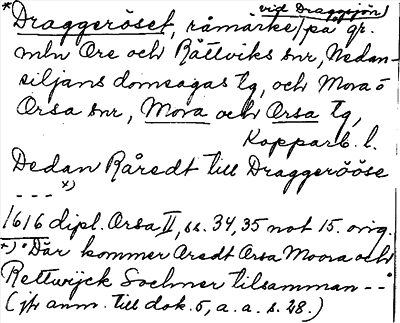 vid Draggsjön/
*Draggeröset, råmärke/på gr.
mln Ore och Rättviks snr, Nedan-
siljans domsagas tg, och Mora o
Orsa snr, Mora och Orsa tg,
Kopparb. l.
Dedan Råredt till Draggerööse
--- *)
1616 dipl. Orsa II, ss. 34, 35 not 15. orig.
*) "Där kommer Aredt Orsa Moora och
Rettwijck Sochner tilsamman --"
(jfr anm. till dok. 5, a. a. s. 28.)